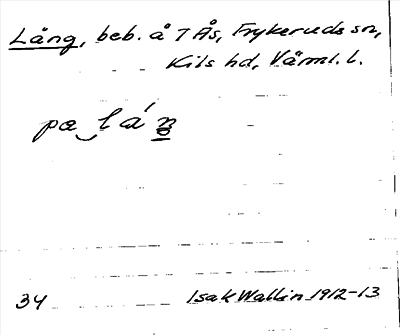 Lång, beb. å 7 Ås, Frykeruds sn,
Kils hd, Värml. l.
pa lá
34
Isak Wallin 1912-13